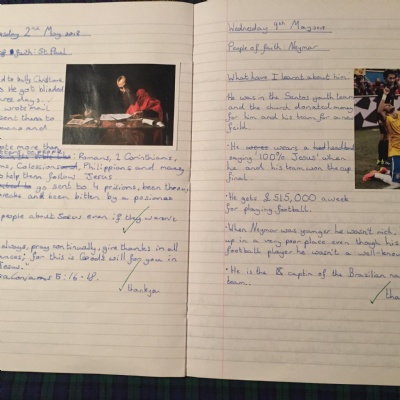 2nd May 2018
faith: St. Paul
to bully Christians.
He got blinded
three days.
wrote mail
sent them to
wrote more than
Romans, 1 Corinthians,
Philippians and many
help them follow Jesus
go sent to 4 prisions, been
and been bitten by a posinous
people about Jesus even if they weren't
always, pray continually, give thanks in all
for this is God's will for you in
Jesus."
5:16-18.
thankyou
Wednesday 9th May 2018
People of faith: Neymar
What have I learnt about him:
He was in the Santos youth team
and the church donated money
for him and his team for a new
feild.
He wears a headband
saying '100% Jesus' when
he and his team won the cup
final.
He gets £515,000 a week
for playing football.
When Neymar was younger he wasn't rich,
up in a very poor place even though his
football player he wasn't a well-know
He is the captin of the Brasilian na
team.
tha